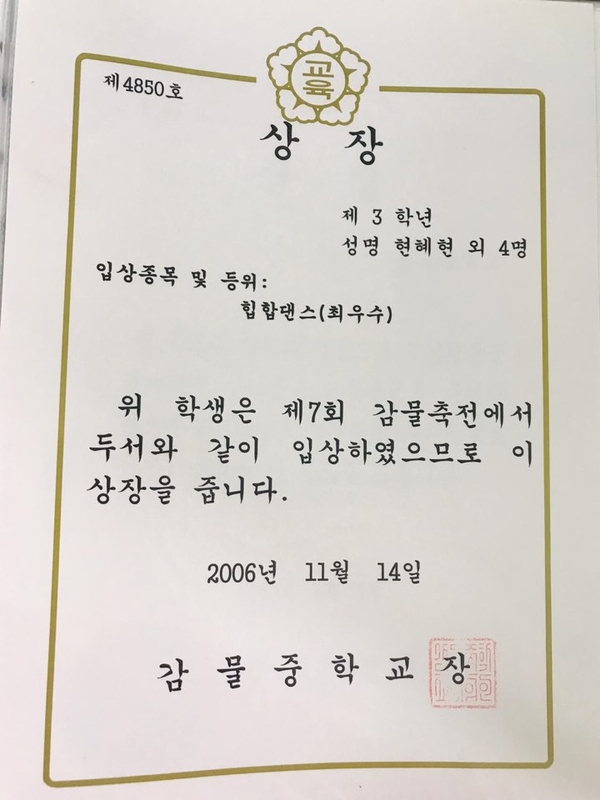 제4850호
교육
상 장
제 3 학년
성명 현혜현 외 4명
입상종목 및 등위:
힙합댄스(최우수)
위 학생은 제7회 감물축전에서
두서와 같이 입상하였으므로 이
상장을 줍니다.
2006년 11월 14일
감물중학교장